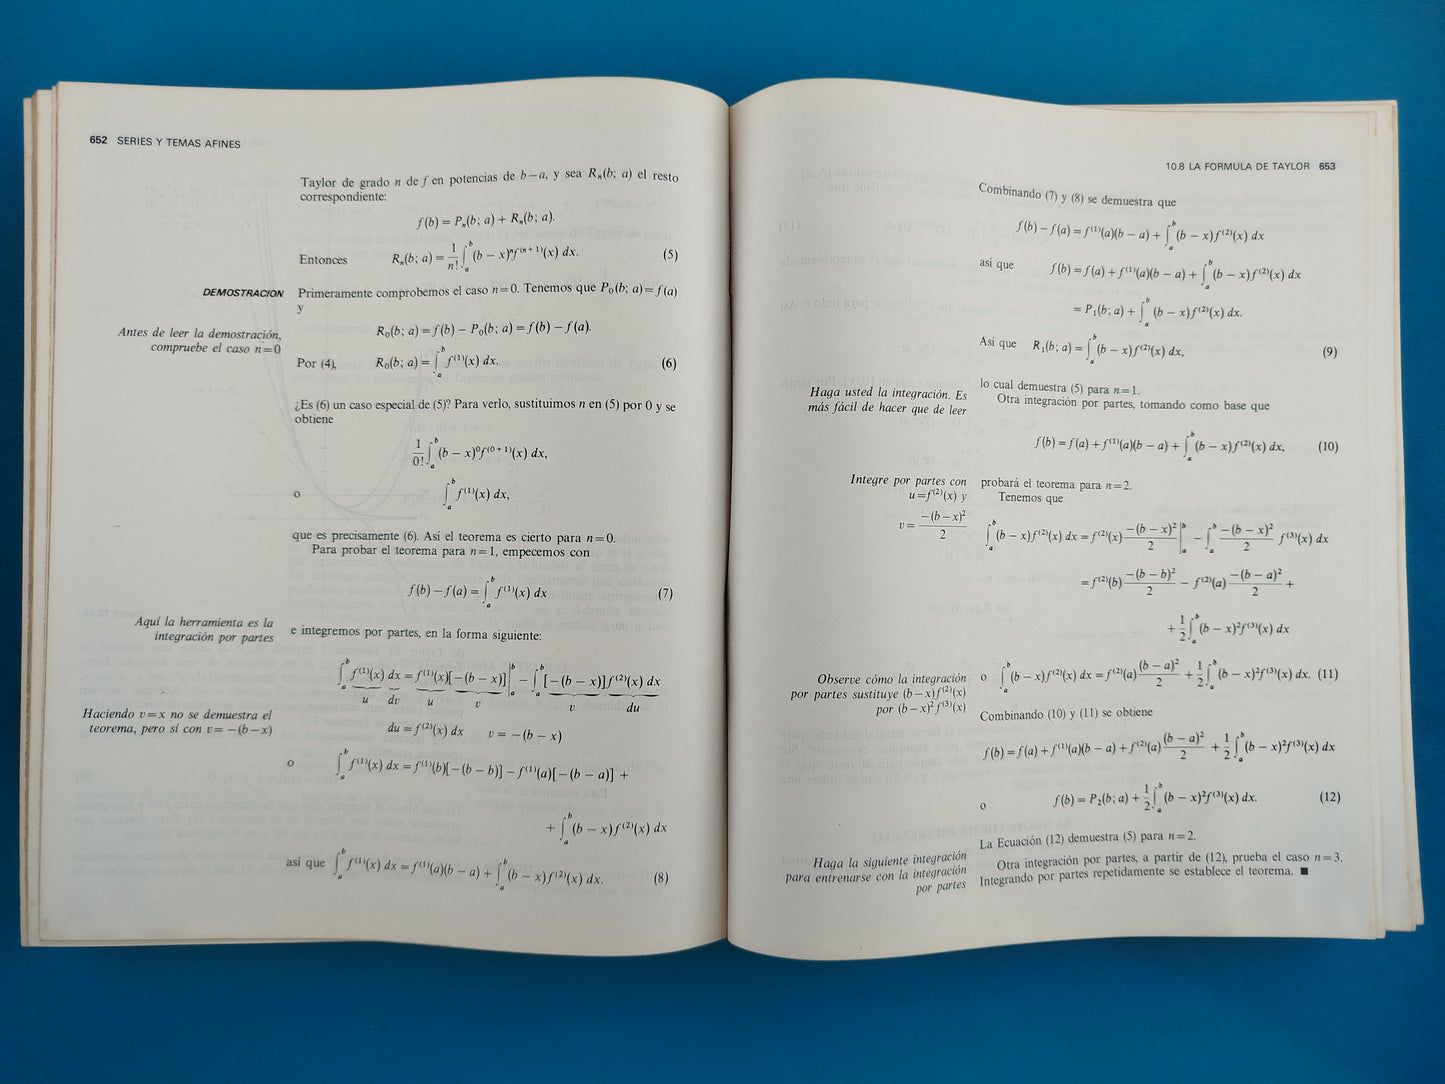 652 SERIES Y TEMAS AFINES
Taylor de grado n de f en potencias de b−a, y sea Rₙ(b; a) el resto
correspondiente:
f(b) = Pₙ(b; a) + Rₙ(b; a).
Entonces Rₙ(b; a) = 1/n! ∫ₐᵇ (b − x)ⁿf⁽ⁿ⁺¹⁾(x) dx. (5)
DEMOSTRACION Primeramente comprobemos el caso n=0. Tenemos que P₀(b; a)=f(a)
y
Antes de leer la demostración,
compruebe el caso n=0
R₀(b; a) = f(b) − P₀(b; a) = f(b) − f(a).
Por (4), R₀(b; a) = ∫ₐᵇ f⁽¹⁾(x) dx. (6)
¿Es (6) un caso especial de (5)? Para verlo, sustituimos n en (5) por 0 y se
obtiene
1/0! ∫ₐᵇ (b − x)⁰f⁽⁰⁺¹⁾(x) dx,
o ∫ₐᵇ f⁽¹⁾(x) dx,
que es precisamente (6). Así el teorema es cierto para n=0.
Para probar el teorema para n=1, empecemos con
f(b) − f(a) = ∫ₐᵇ f⁽¹⁾(x) dx (7)
Aquí la herramienta es la
integración por partes
e integremos por partes, en la forma siguiente:
∫ₐᵇ f⁽¹⁾(x) dx = f⁽¹⁾(x)[−(b − x)]|ₐᵇ − ∫ₐᵇ [−(b − x)]f⁽²⁾(x) dx
u dv u v v du
Haciendo v=x no se demuestra el
teorema, pero sí con v= −(b−x)
du = f⁽²⁾(x) dx v = −(b − x)
o ∫ₐᵇ f⁽¹⁾(x) dx = f⁽¹⁾(b)[−(b − b)] − f⁽¹⁾(a)[−(b − a)] +
+ ∫ₐᵇ (b − x)f⁽²⁾(x) dx
así que ∫ₐᵇ f⁽¹⁾(x) dx = f⁽¹⁾(a)(b − a) + ∫ₐᵇ (b − x)f⁽²⁾(x) dx. (8)
10.8 LA FORMULA DE TAYLOR 653
Combinando (7) y (8) se demuestra que
f(b) − f(a) = f⁽¹⁾(a)(b − a) + ∫ₐᵇ (b − x)f⁽²⁾(x) dx
así que f(b) = f(a) + f⁽¹⁾(a)(b − a) + ∫ₐᵇ (b − x)f⁽²⁾(x) dx
= P₁(b; a) + ∫ₐᵇ (b − x)f⁽²⁾(x) dx.
Así que R₁(b; a) = ∫ₐᵇ (b − x)f⁽²⁾(x) dx, (9)
lo cual demuestra (5) para n=1.
Haga usted la integración. Es
más fácil de hacer que de leer
Otra integración por partes, tomando como base que
f(b) = f(a) + f⁽¹⁾(a)(b − a) + ∫ₐᵇ (b − x)f⁽²⁾(x) dx, (10)
Integre por partes con
u=f⁽²⁾(x) y
v = −(b − x)²/2
probará el teorema para n=2.
Tenemos que
∫ₐᵇ (b − x)f⁽²⁾(x) dx = f⁽²⁾(x) −(b − x)²/2 |ₐᵇ − ∫ₐᵇ −(b − x)²/2 f⁽³⁾(x) dx
= f⁽²⁾(b) −(b − b)²/2 − f⁽²⁾(a) −(b − a)²/2 +
+ 1/2 ∫ₐᵇ (b − x)²f⁽³⁾(x) dx
Observe cómo la integración
por partes sustituye (b−x)f⁽²⁾(x)
por (b−x)²f⁽³⁾(x)
o ∫ₐᵇ (b − x)f⁽²⁾(x) dx = f⁽²⁾(a) (b − a)²/2 + 1/2 ∫ₐᵇ (b − x)²f⁽³⁾(x) dx. (11)
Combinando (10) y (11) se obtiene
f(b) = f(a) + f⁽¹⁾(a)(b − a) + f⁽²⁾(a) (b − a)²/2 + 1/2 ∫ₐᵇ (b − x)²f⁽³⁾(x) dx
o f(b) = P₂(b; a) + 1/2 ∫ₐᵇ (b − x)²f⁽³⁾(x) dx. (12)
La Ecuación (12) demuestra (5) para n=2.
Haga la siguiente integración
para entrenarse con la integración
por partes
Otra integración por partes, a partir de (12), prueba el caso n=3.
Integrando por partes repetidamente se establece el teorema. ■